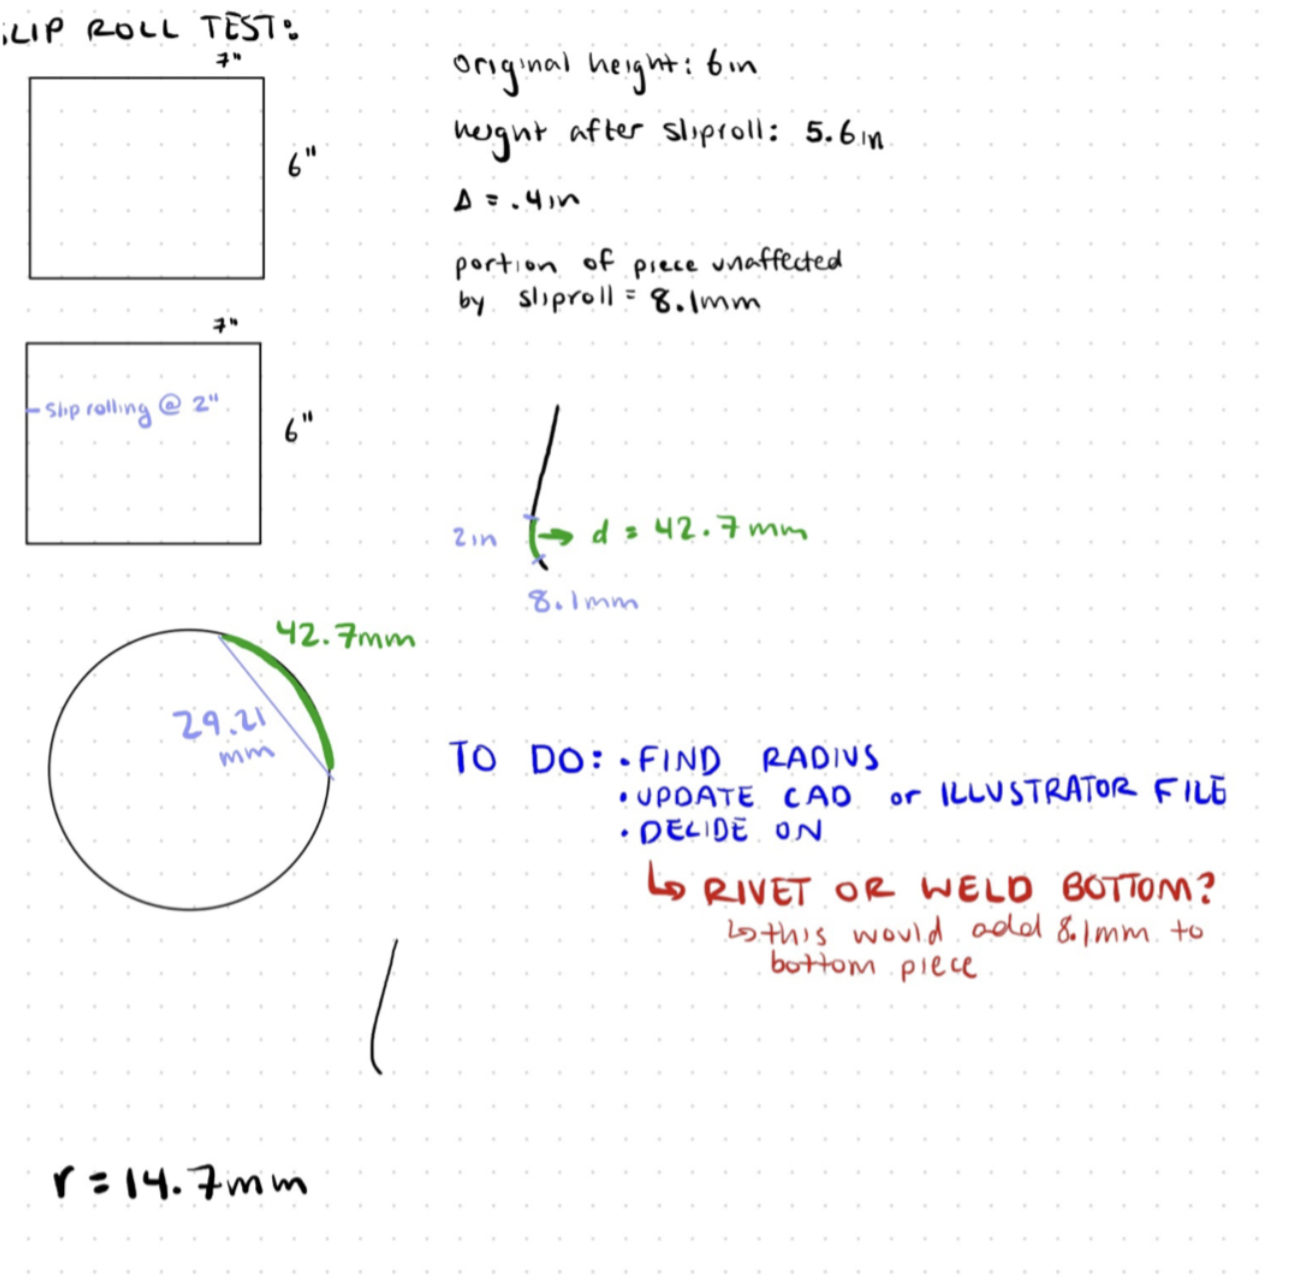 SLIP ROLL TEST:
7"
6"
original height: 6in
height after sliproll: 5.6in
Δ = .4in
portion of piece unaffected
by sliproll = 8.1mm
7"
Slip rolling @ 2"
6"
2in
d = 42.7mm
8.1mm
42.7mm
29.21
mm
TO DO: • FIND RADIUS
• UPDATE CAD or ILLUSTRATOR FILE
• DECIDE ON
↳ RIVET OR WELD BOTTOM?
↳ this would add 8.1mm to
bottom piece
r = 14.7mm